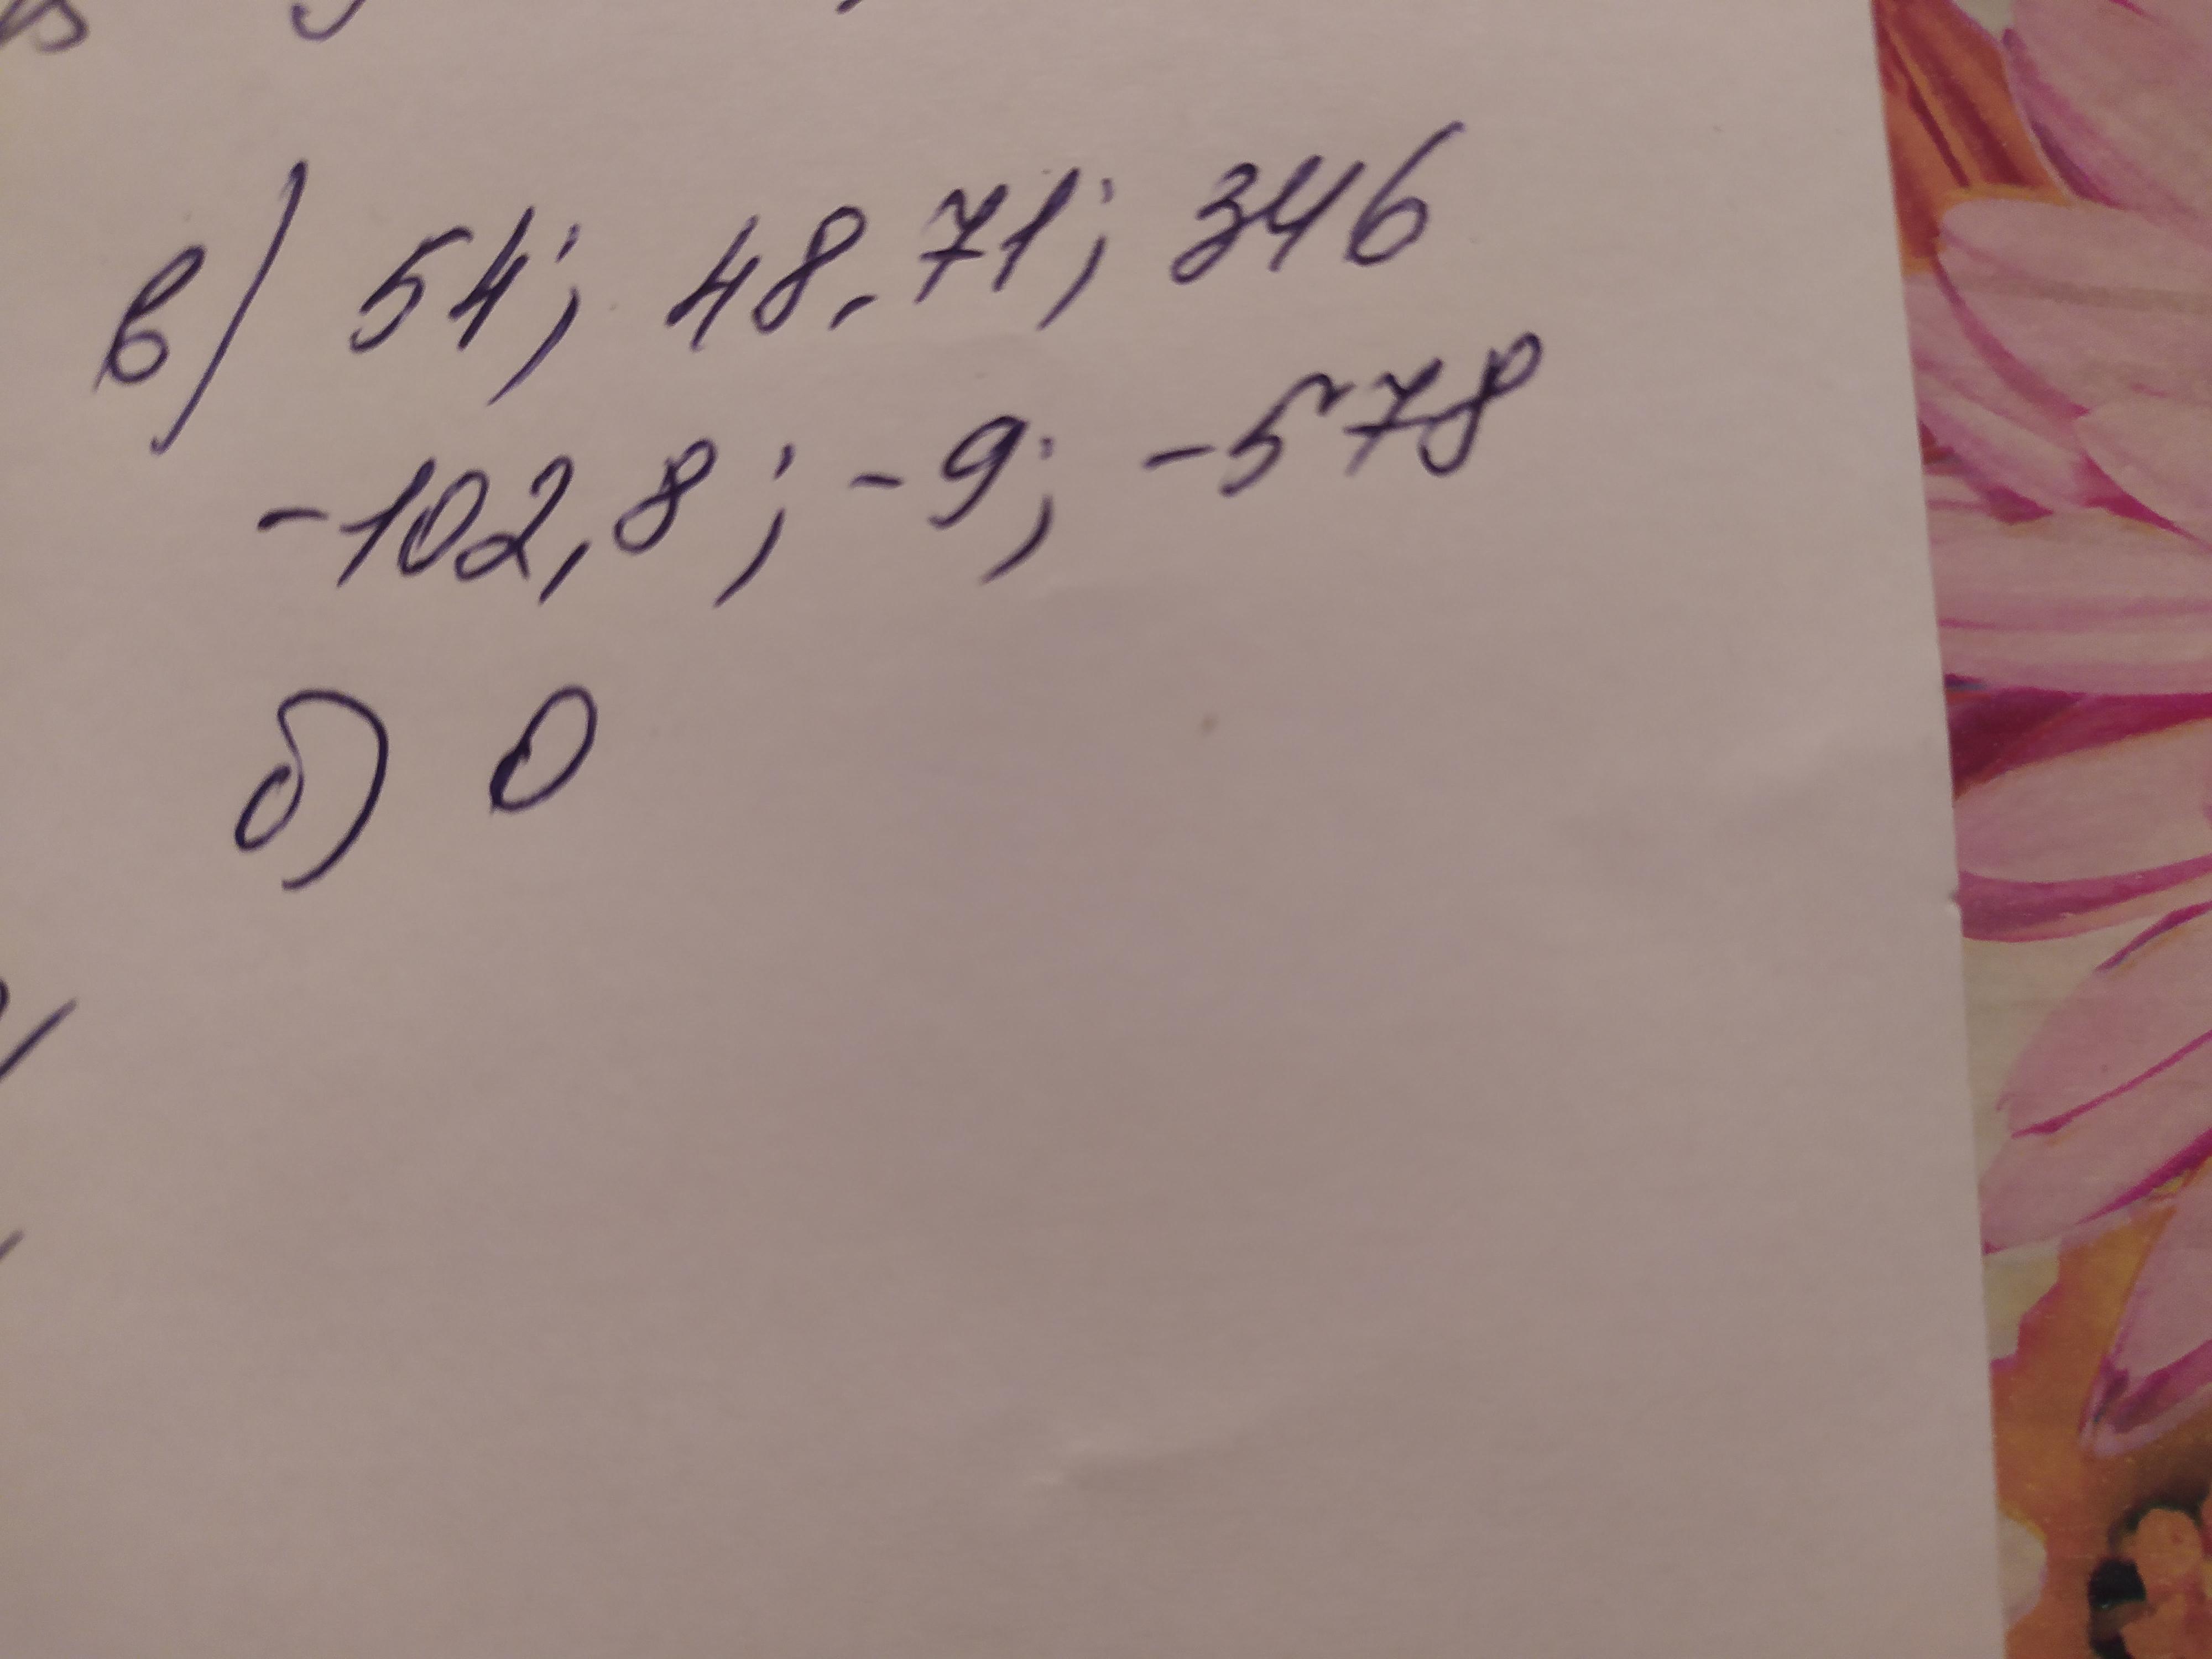 в) 54; 48,71; 346
-102,8; -9; -578
б) 0